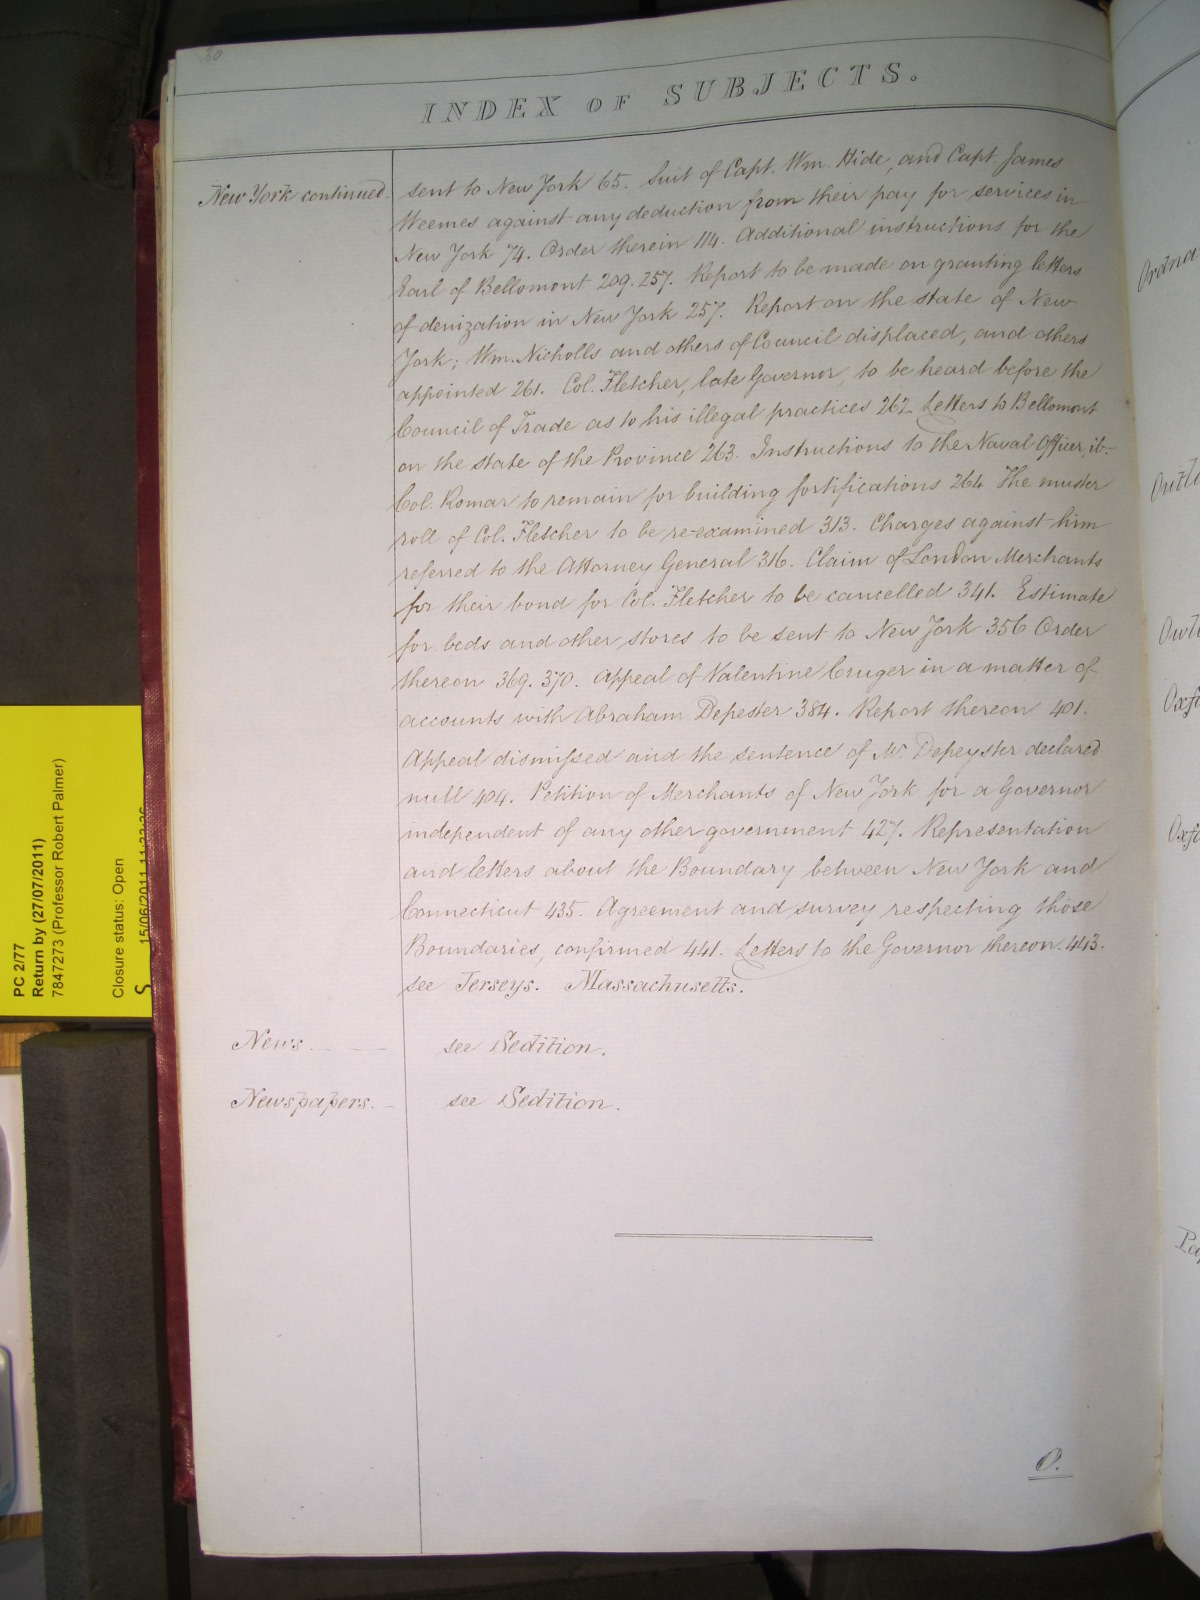 80
INDEX OF SUBJECTS.
New York continued. sent to New York 65. Suit of Capt. Wm. Hide, and Capt. James
Weemes against any deduction from their pay for services in
New York 74. Order therein 114. Additional instructions for the
Earl of Bellomont 209. 257. Report to be made on granting letters
of denization in New York 257. Report on the state of New
York; Wm. Nicholls and others of Council displaced, and others
appointed 261. Col. Fletcher, late Governor, to be heard before the
Council of Trade as to his illegal practices 262 Letters to Bellomont
on the state of the Province 263. Instructions to the Naval Officer, ib-
Col. Romar to remain for building fortifications 264 The muster
roll of Col. Fletcher to be re-examined 313. Charges against him
referred to the Attorney General 316. Claim of London Merchants
for their bond for Col. Fletcher to be cancelled 341. Estimate
for beds and other stores to be sent to New York 356 Order
thereon 369. 370. Appeal of Valentine Cruger in a matter of
accounts with Abraham Depester 384. Report thereon 401.
Appeal dismissed and the sentence of Mr. Depeyster declared
null 404. Petition of Merchants of New York for a Governor
independent of any other government 427. Representation
and letters about the Boundary between New York and
Connecticut 435. Agreement and survey respecting those
Boundaries, confirmed 441. Letters to the Governor thereon. 443.
see Jerseys. Massachusetts.
News. see Sedition.
Newspapers. see Sedition.
O.
PC 2/77
Return by (27/07/2011)
7847273 (Professor Robert Palmer)
Closure status: Open
S 15/06/2011 11:23:26
Ordna
Oxfo
Oxfo